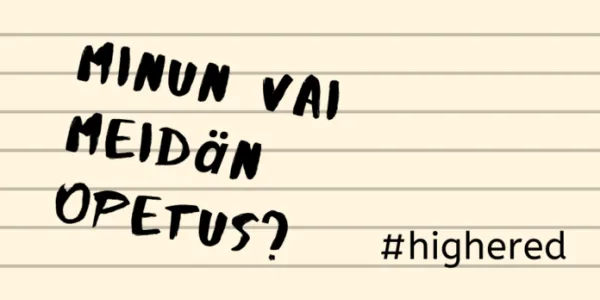 MINUN VAI
MEIDÄN
OPETUS?
#highered